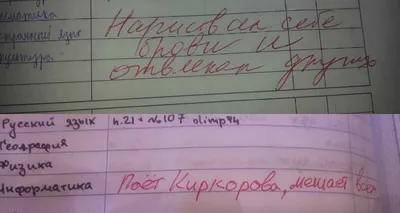 Нарисовал себе
брови и
отвлекал других
Русский язык п.21 + №107 olimp94
География
Физика
Информатика Поёт Киркорова, мешает всем